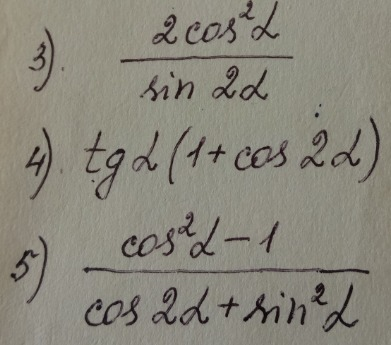 3). 2cos²α / sin 2α
4) tgα(1+cos 2α)
5) cos²α-1 / cos2α+sin²α